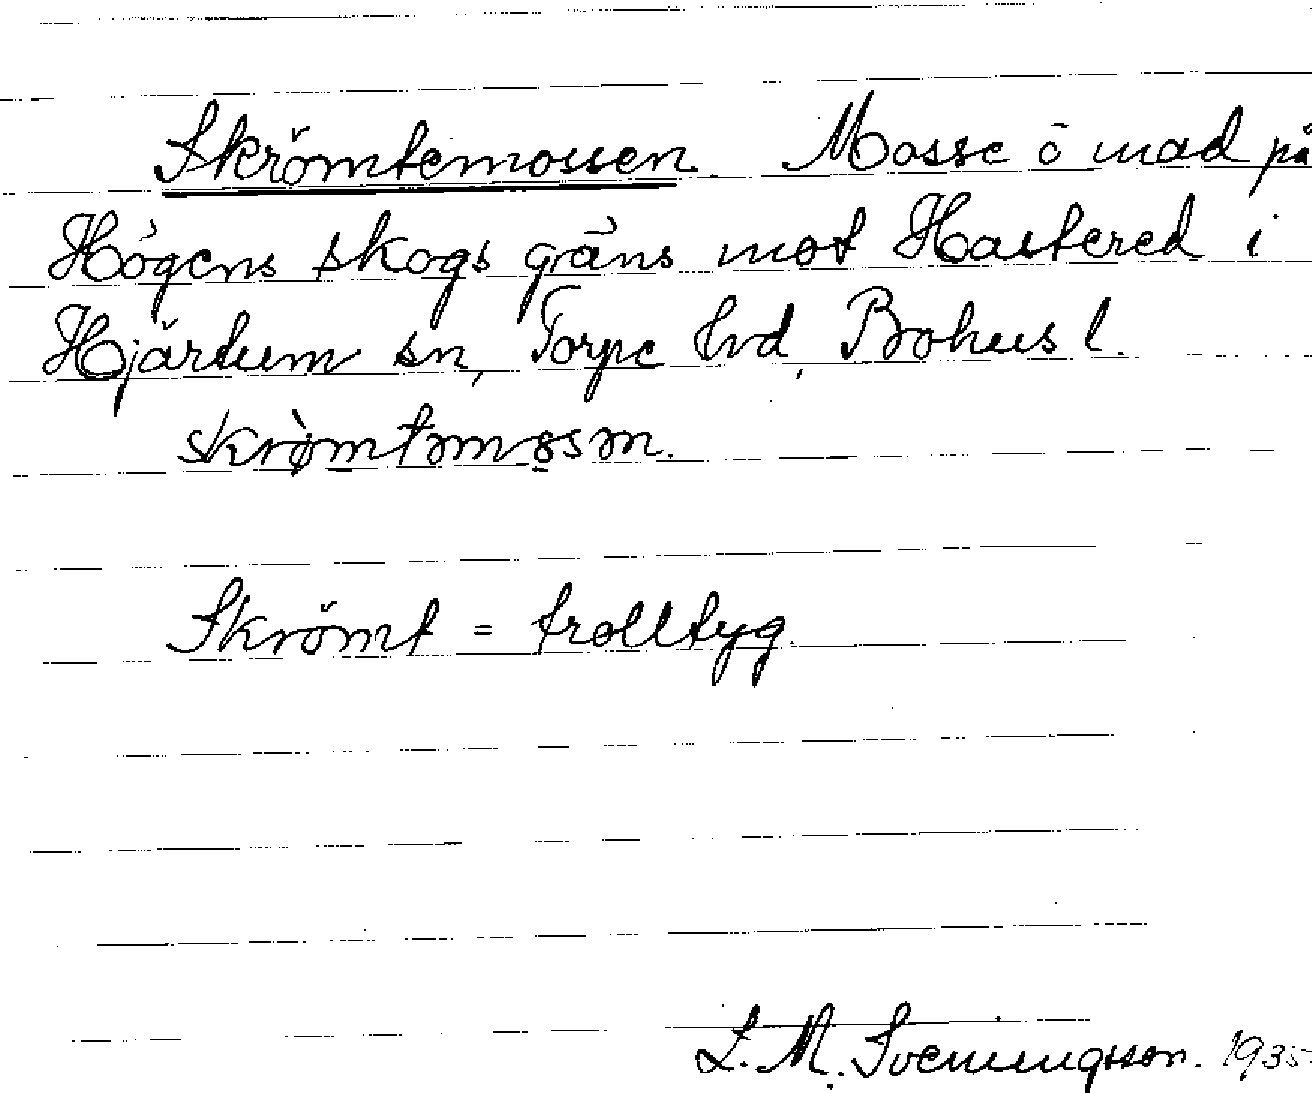 Skrömtemossen. Mosse o mad på
Högens skogs gräns mot Hastered i
Hjärtum sn, Torpe hd, Bohus l.
skrömtəmosən.
Skrömt = trolltyg.
L. M. Svenningsson. 1935